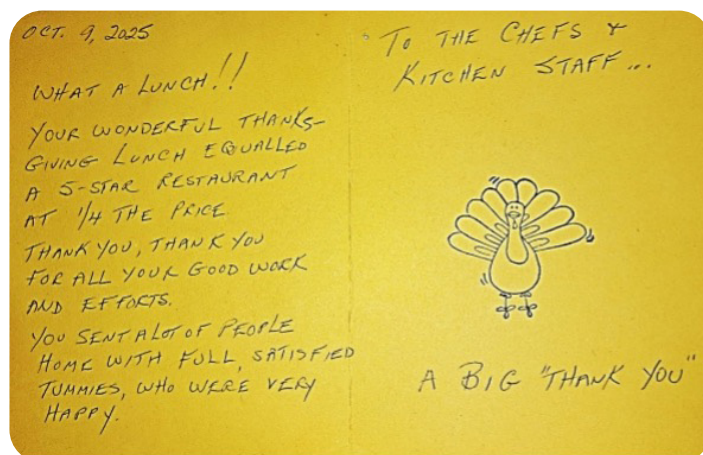 OCT. 9, 2025
WHAT A LUNCH!!
YOUR WONDERFUL THANKS-
GIVING LUNCH EQUALLED
A 5-STAR RESTAURANT
AT 1/4 THE PRICE
THANK YOU, THANK YOU
FOR ALL YOUR GOOD WORK
AND EFFORTS.
YOU SENT A LOT OF PEOPLE
HOME WITH FULL, SATISFIED
TUMMIES, WHO WERE VERY
HAPPY.
TO THE CHEFS &
KITCHEN STAFF...
A BIG "THANK YOU"